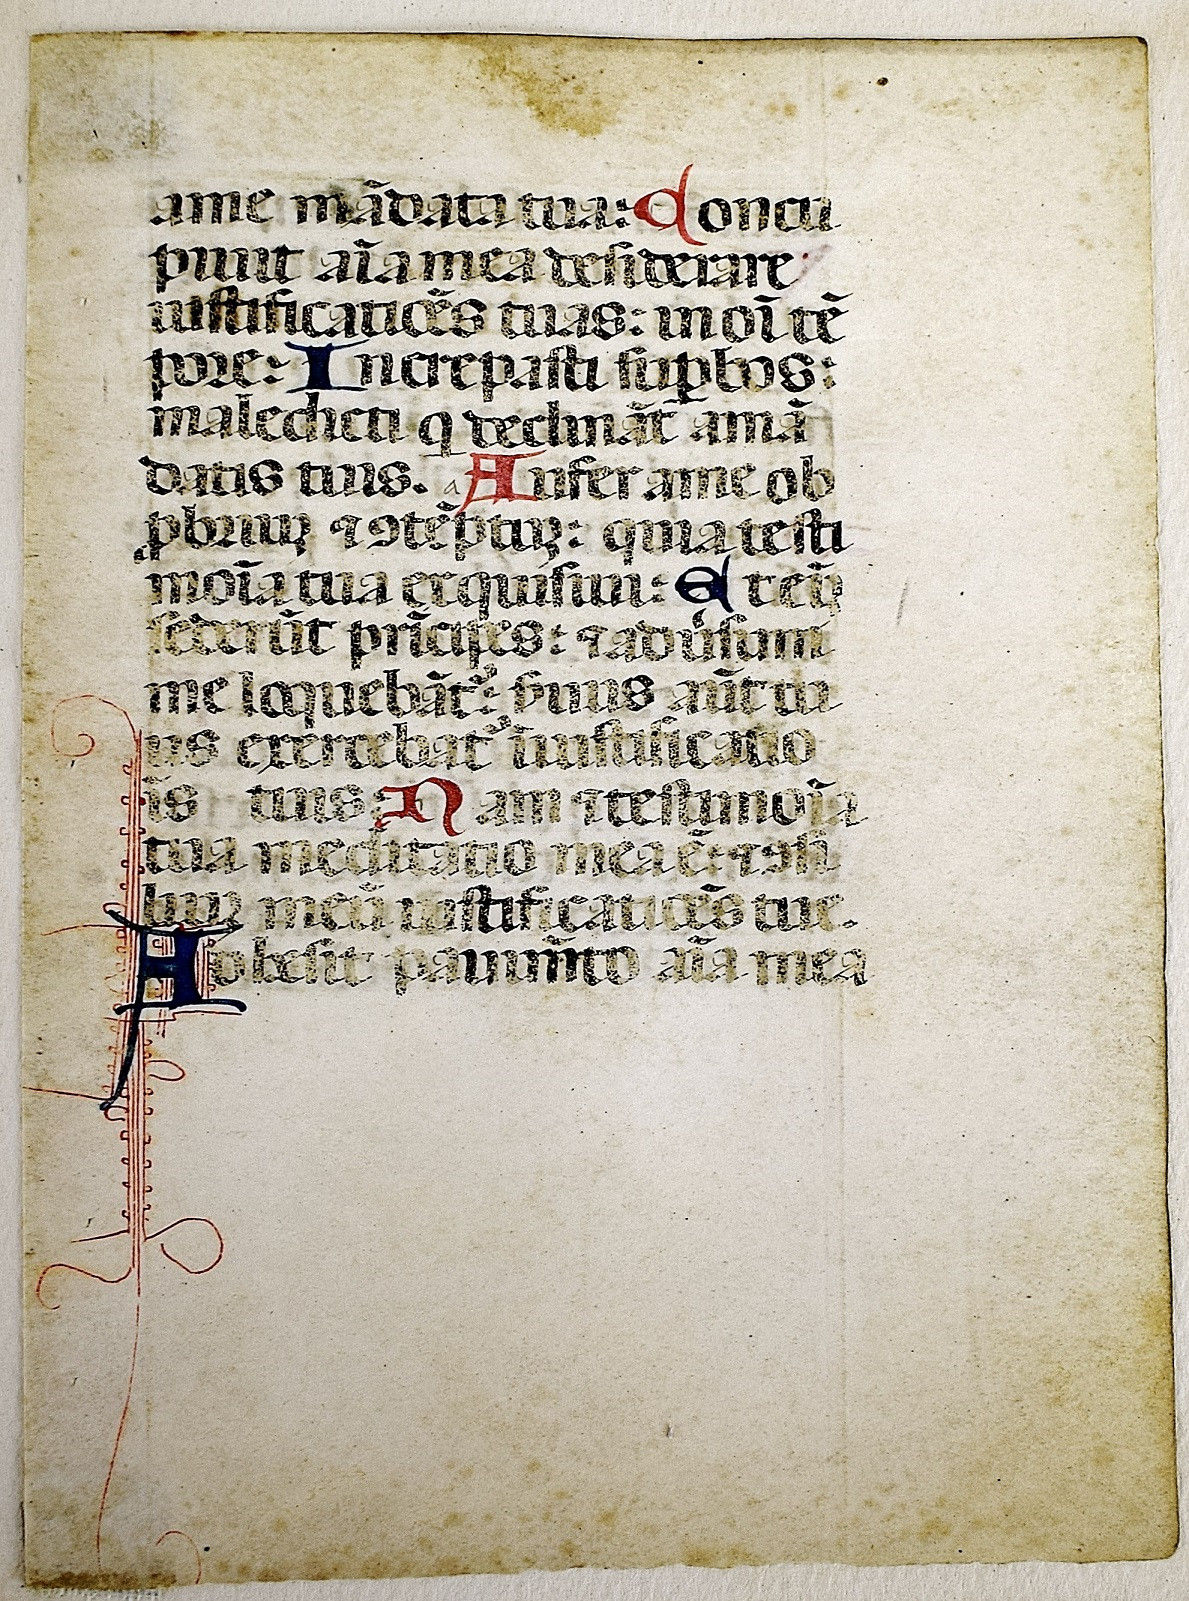 ame mãdata tua: Concu
piuit aĩa mea desiderare
iustificatiões tuas: in oĩ tẽ
pore: Increpasti supbos:
maledicti q declinãt a mã
datis tuis. a Aufer a me ob
pbriuꝫ ⁊ ꝯtẽptuꝫ: quia testi
moĩa tua exquisiui: Et eĩ
sederũt prĩcipes: ⁊ aduˀsum
me loquebãtˀ: suus aũt tu
us exercebatˀ ĩ iustificatio
ĩs tuis: Nam ⁊ testimoĩa
tua meditatio mea ẽ: ⁊ ꝯsi
liuꝫ meũ iustificatiões tue.
Adhesit pauimẽto aĩa mea